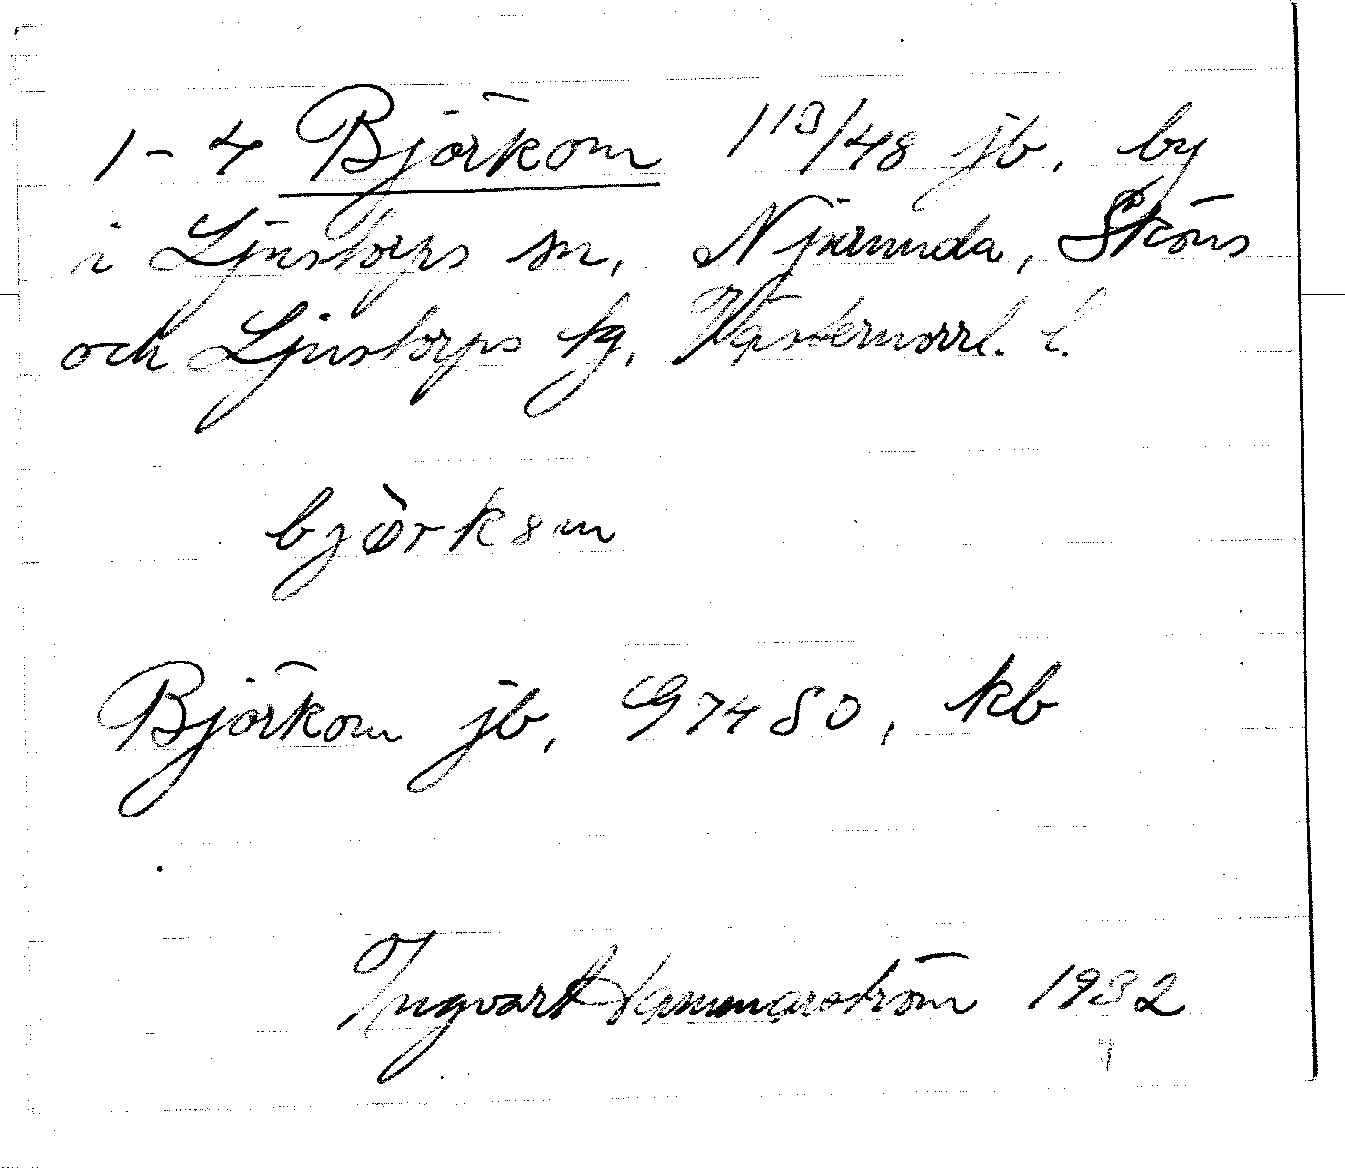 1-4 Björkom 1 13/48 jb. by
i Ljustorps sn, Njurunda, Sköns
och Ljustorps tg, Västernorrl. l.
bjòrkəm
Björkom jb, G 7480, kb
Ingvart Hammarström 1932